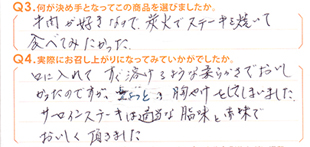 Q3.何が決め手となってこの商品を選びましたか。
牛肉が好きなので、炭火でステーキを焼いて
食べてみたかった。
Q4.実際にお召し上がりになってみていかがでしたか。
口に入れて すぐ溶けるような柔らかさでおいし
かったのですが、 胸やけをしてしまいました。
サーロインステーキは適当な脂味と赤味で
おいしく頂きました